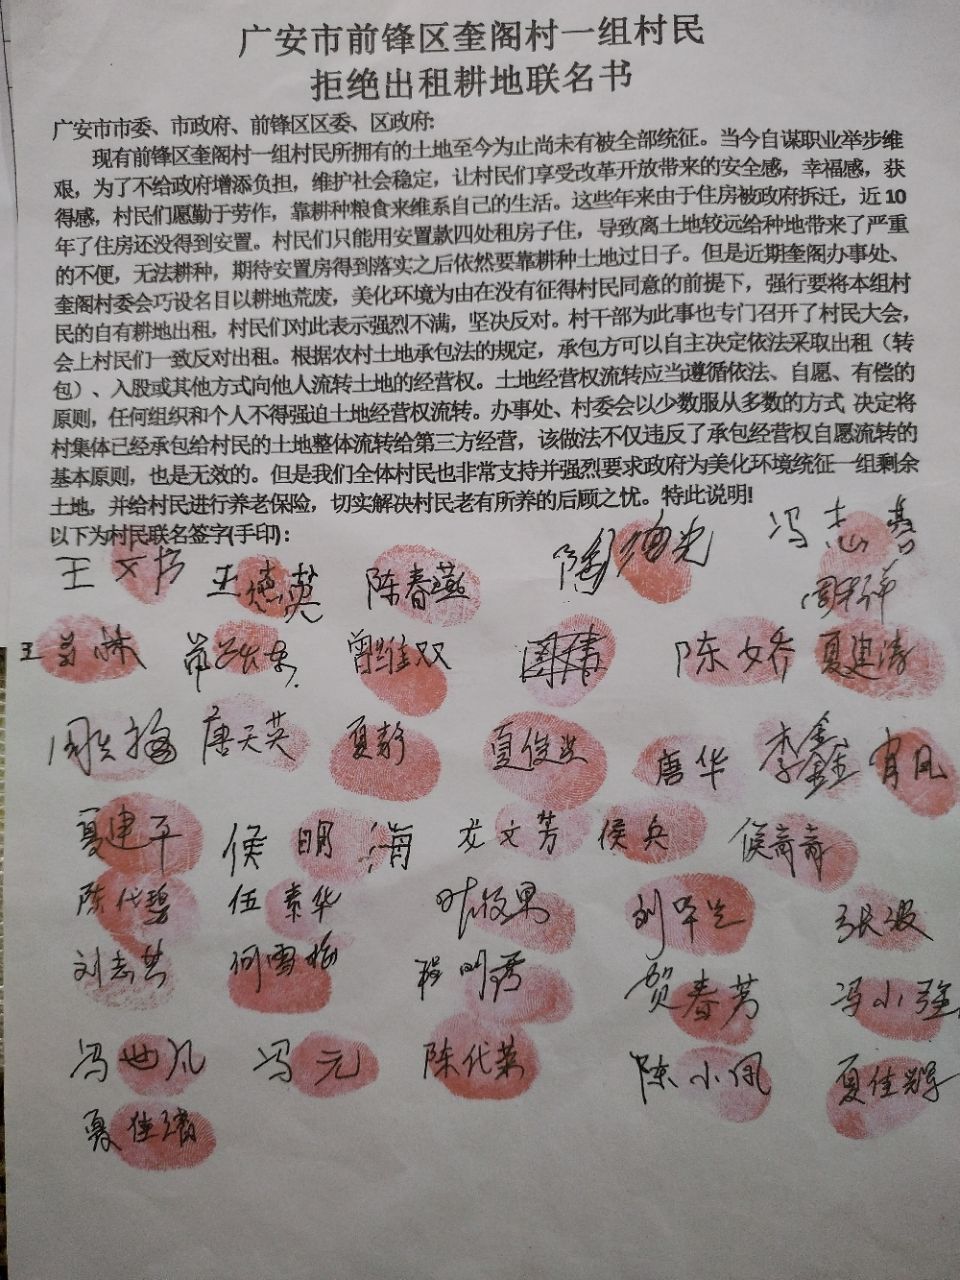 广安市前锋区奎阁村一组村民
拒绝出租耕地联名书
广安市市委、市政府、前锋区区委、区政府:
现有前锋区奎阁村一组村民所拥有的土地至今为止尚未有被全部统征。当今自谋职业举步维
艰，为了不给政府增添负担，维护社会稳定，让村民们享受改革开放带来的安全感，幸福感，获
得感，村民们愿勤于劳作，靠耕种粮食来维系自己的生活。这些年来由于住房被政府拆迁，近 10
年了住房还没得到安置。村民们只能用安置款四处租房子住，导致离土地较远给种地带来了严重
的不便，无法耕种，期待安置房得到落实之后依然要靠耕种土地过日子。但是近期奎阁办事处、
奎阁村委会巧设名目以耕地荒废，美化环境为由在没有征得村民同意的前提下，强行要将本组村
民的自有耕地出租，村民们对此表示强烈不满，坚决反对。村干部为此事也专门召开了村民大会，
会上村民们一致反对出租。根据农村土地承包法的规定，承包方可以自主决定依法采取出租（转
包）、入股或其他方式向他人流转土地的经营权。土地经营权流转应当遵循依法、自愿、有偿的
原则，任何组织和个人不得强迫土地经营权流转。办事处、村委会以少数服从多数的方式 决定将
村集体已经承包给村民的土地整体流转给第三方经营，该做法不仅违反了承包经营权自愿流转的
基本原则，也是无效的。但是我们全体村民也非常支持并强烈要求政府为美化环境统征一组剩余
土地，并给村民进行养老保险，切实解决村民老有所养的后顾之忧。特此说明!
以下为村民联名签字(手印)：
王德英 陈春燕 陶德光
曾维双 陈文乔 夏建涛
唐天英 夏静 唐华 李鑫鑫 肖凤
夏建平 侯明海 龙文芳 侯兵 侯奇奇
陈代碧 伍素华 张波
何雪梅 贺春芳 冯小强
冯世凡 冯元 陈代英 陈小凤 夏佳辉